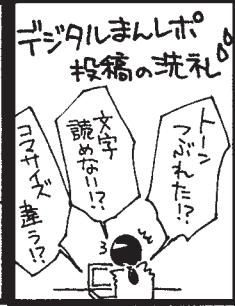 デジタルまんレポ
投稿の洗礼
トーン
つぶれた!?
文字
読めない!?
コマサイズ
違う!?